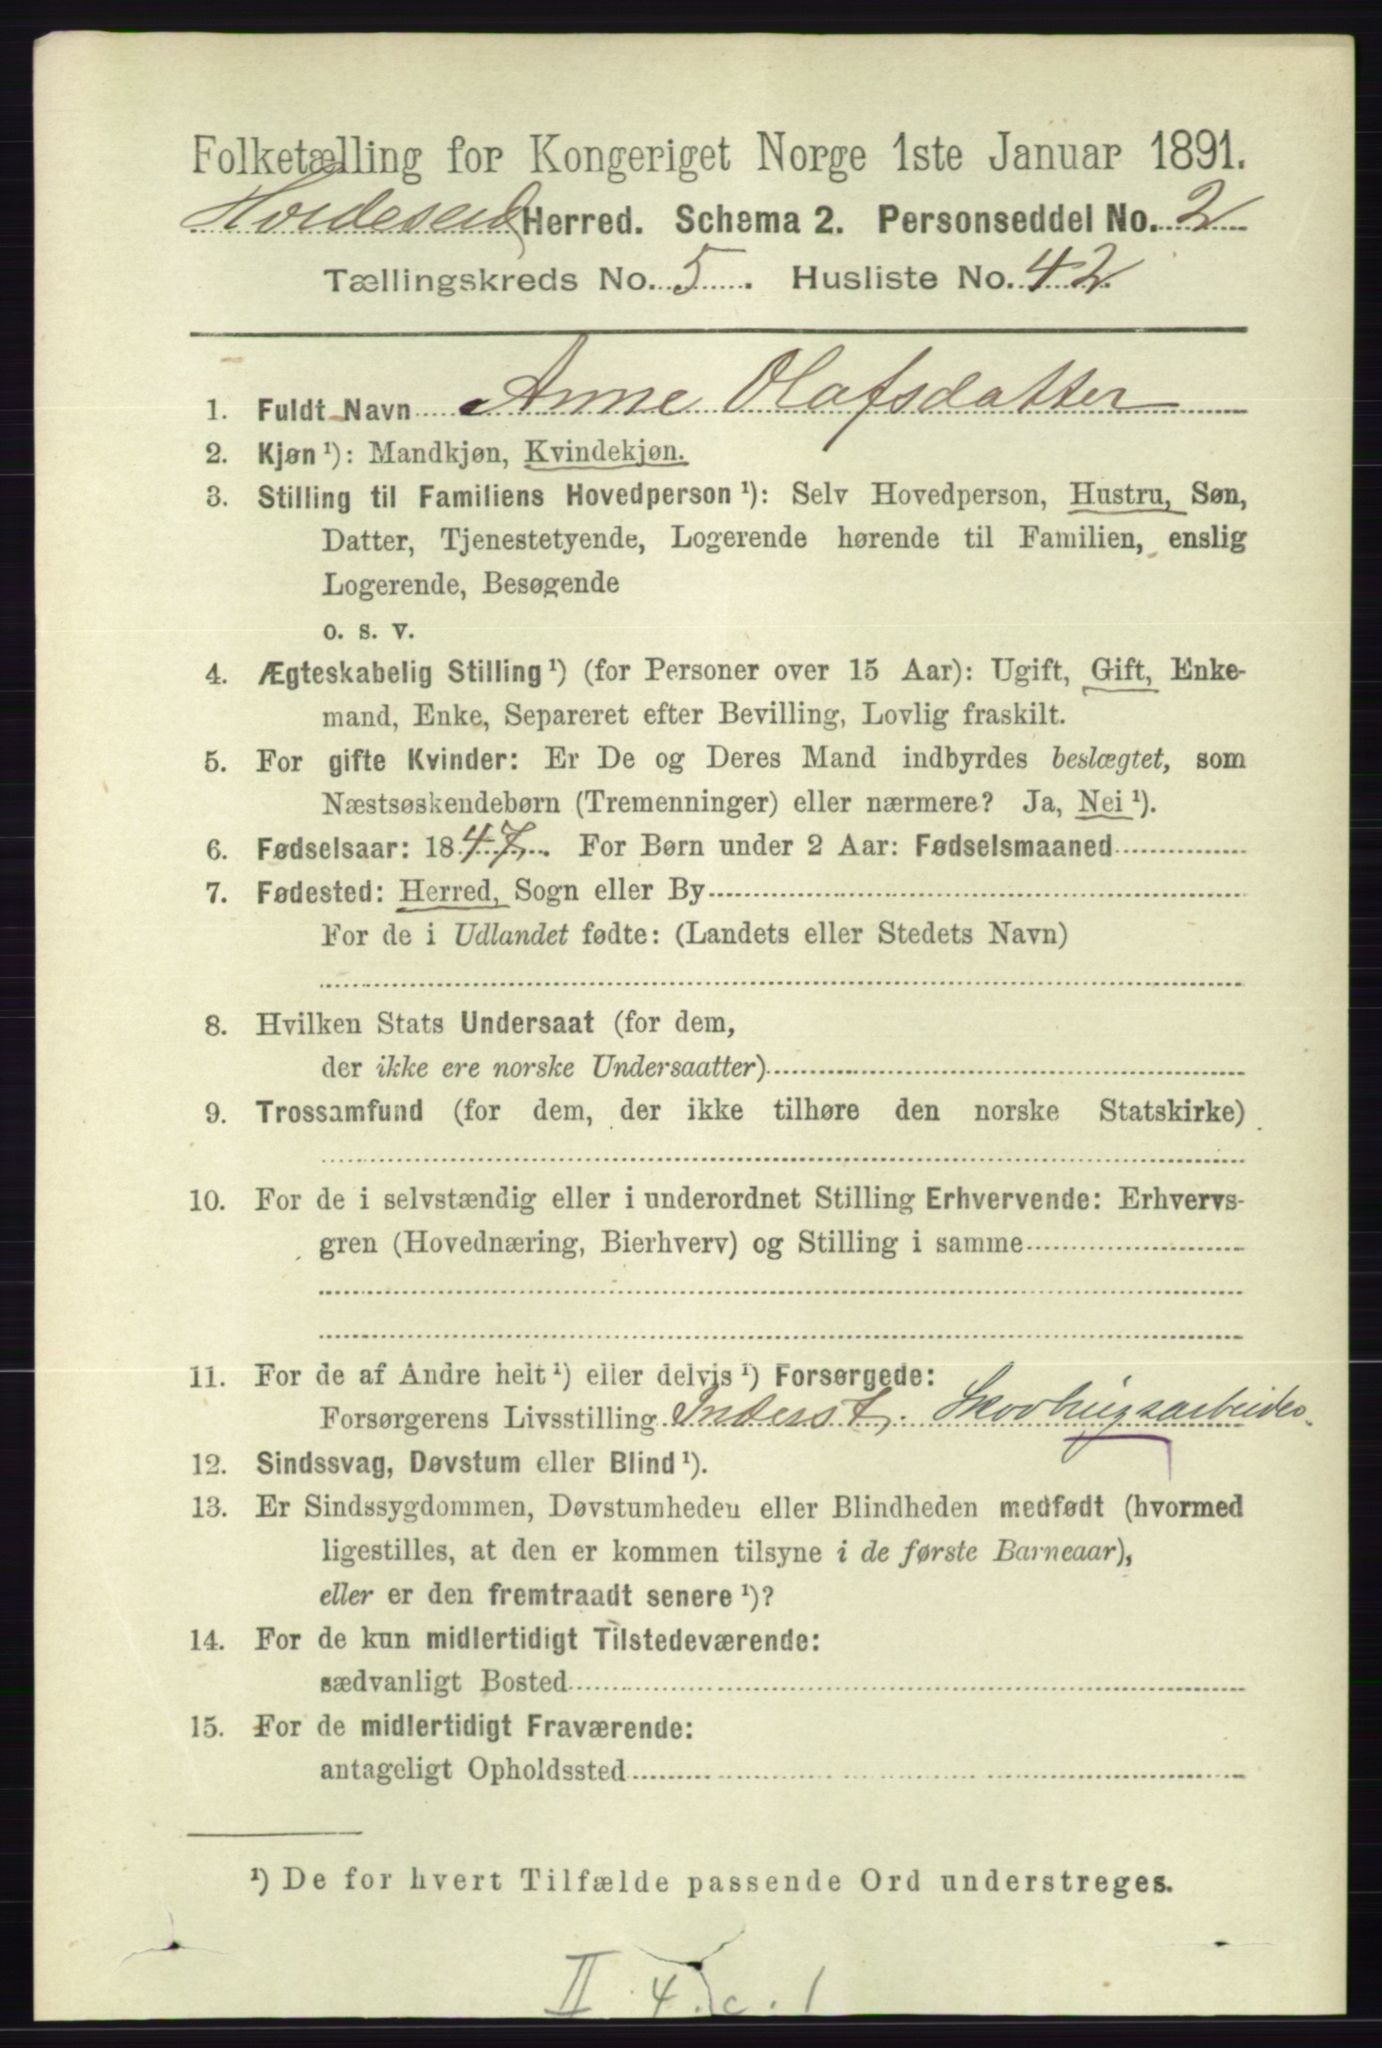 Folketælling for Kongeriget Norge 1ste Januar 1891.
Hvideseid Herred. Schema 2. Personseddel No. 2
Tællingskreds No. 5. Husliste No. 42
1. Fuldt Navn Anne Olafsdatter
2. Kjøn ¹): Mandkjøn, Kvindekjøn.
3. Stilling til Familiens Hovedperson ¹): Selv Hovedperson, Hustru, Søn,
Datter, Tjenestetyende, Logerende hørende til Familien, enslig
Logerende, Besøgende
o. s. v.
4. Ægteskabelig Stilling ¹) (for Personer over 15 Aar): Ugift, Gift, Enke-
mand, Enke, Separeret efter Bevilling, Lovlig fraskilt.
5. For gifte Kvinder: Er De og Deres Mand indbyrdes beslægtet, som
Næstsøskendebørn (Tremenninger) eller nærmere? Ja, Nei ¹).
6. Fødselsaar: 1847. For Børn under 2 Aar: Fødselsmaaned
7. Fødested: Herred, Sogn eller By
For de i Udlandet fødte: (Landets eller Stedets Navn)
8. Hvilken Stats Undersaat (for dem,
der ikke ere norske Undersaatter)
9. Trossamfund (for dem, der ikke tilhøre den norske Statskirke)
10. For de i selvstændig eller i underordnet Stilling Erhvervende: Erhvervs-
gren (Hovednæring, Bierhverv) og Stilling i samme
11. For de af Andre helt ¹) eller delvis ¹) Forsørgede:
Forsørgerens Livsstilling Inderst, Skovhugsarbeider
12. Sindssvag, Døvstum eller Blind ¹).
13. Er Sindssygdommen, Døvstumheden eller Blindheden medfødt (hvormed
ligestilles, at den er kommen tilsyne i de første Barneaar),
eller er den fremtraadt senere ¹)?
14. For de kun midlertidigt Tilstedeværende:
sædvanligt Bosted
15. For de midlertidigt Fraværende:
antageligt Opholdssted
¹) De for hvert Tilfælde passende Ord understreges.
II. 4. c. 1